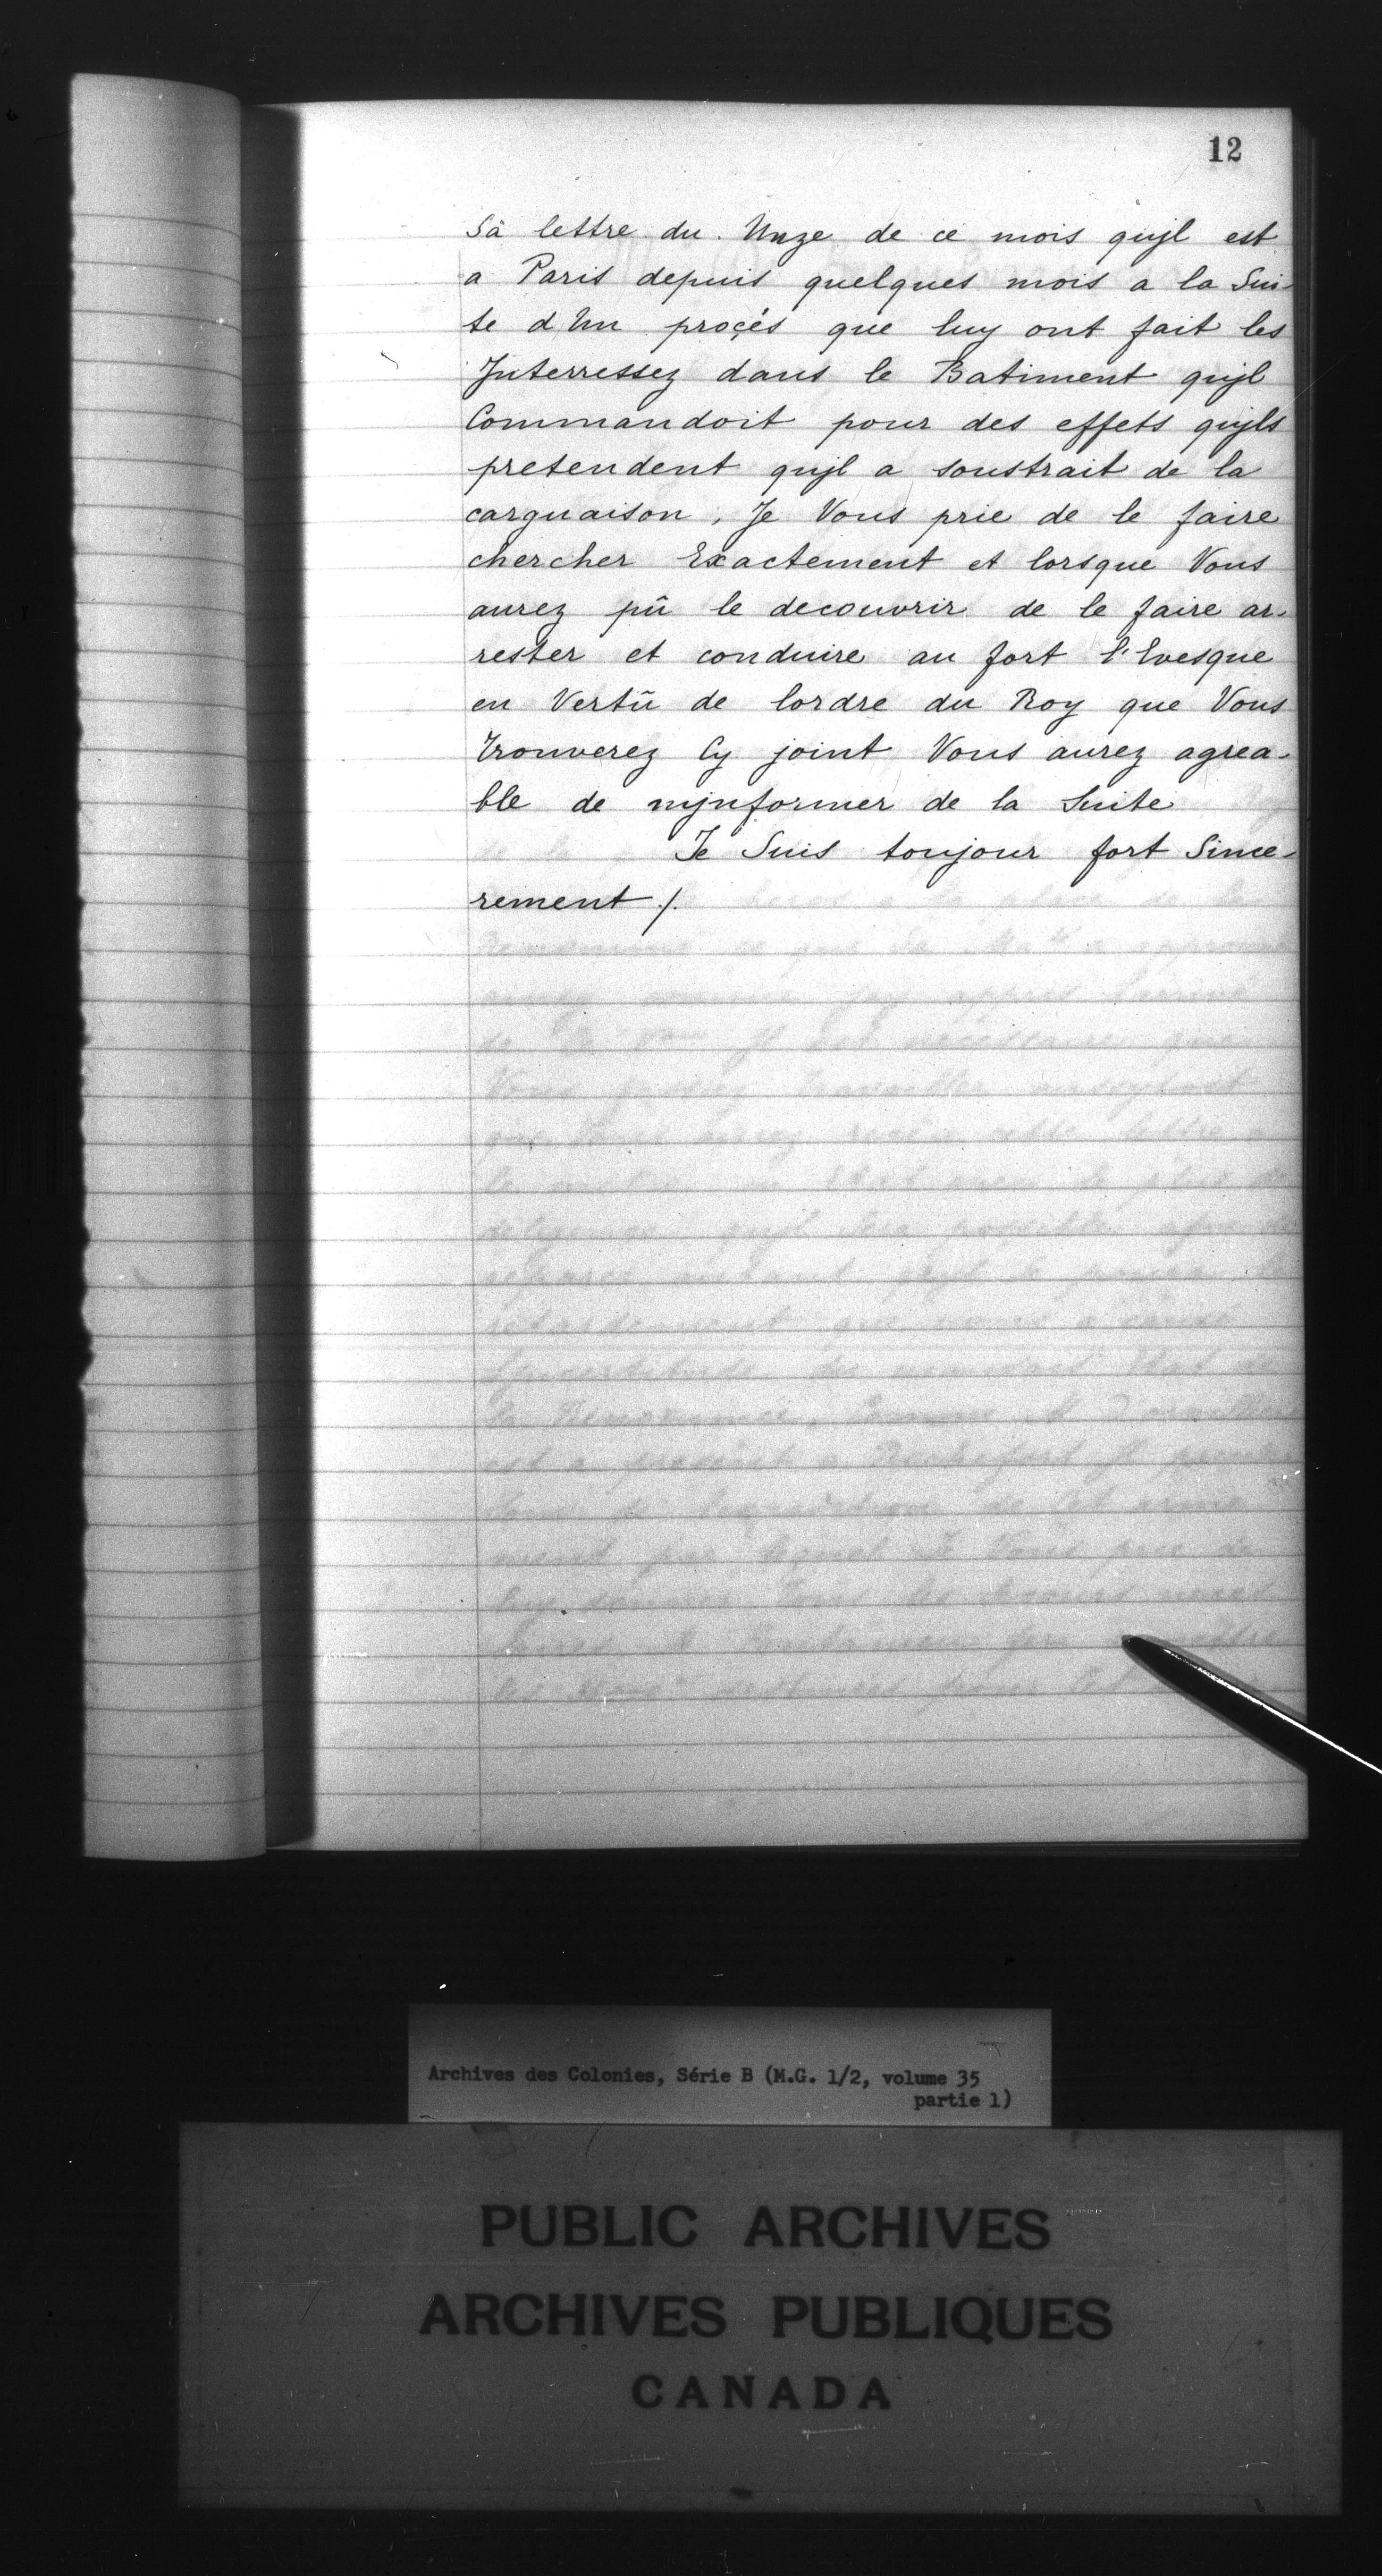 12
Sa lettre du Unze de ce mois qujl est
a Paris depuis quelques mois a la Sui-
te d'Un proçés que luy ont fait les
Jnterressez dans le Batiment qujl
Commandoit pour des effets qujls
pretendent qujl a soustrait de la
carguaison, Je Vous prie de le faire
chercher Exactement et lorsque Vous
aurez pû le decouvrir de le faire ar-
rester et conduire au fort l'Evesque
en Vertû de lordre du Roy que Vous
trouverez Cy joint Vous aurez agrea-
ble de mjnformer de la Suite
Je Suis toujour fort Since-
rement /.
Archives des Colonies, Série B (M.G. 1/2, volume 35
partie 1)
PUBLIC ARCHIVES
ARCHIVES PUBLIQUES
CANADA